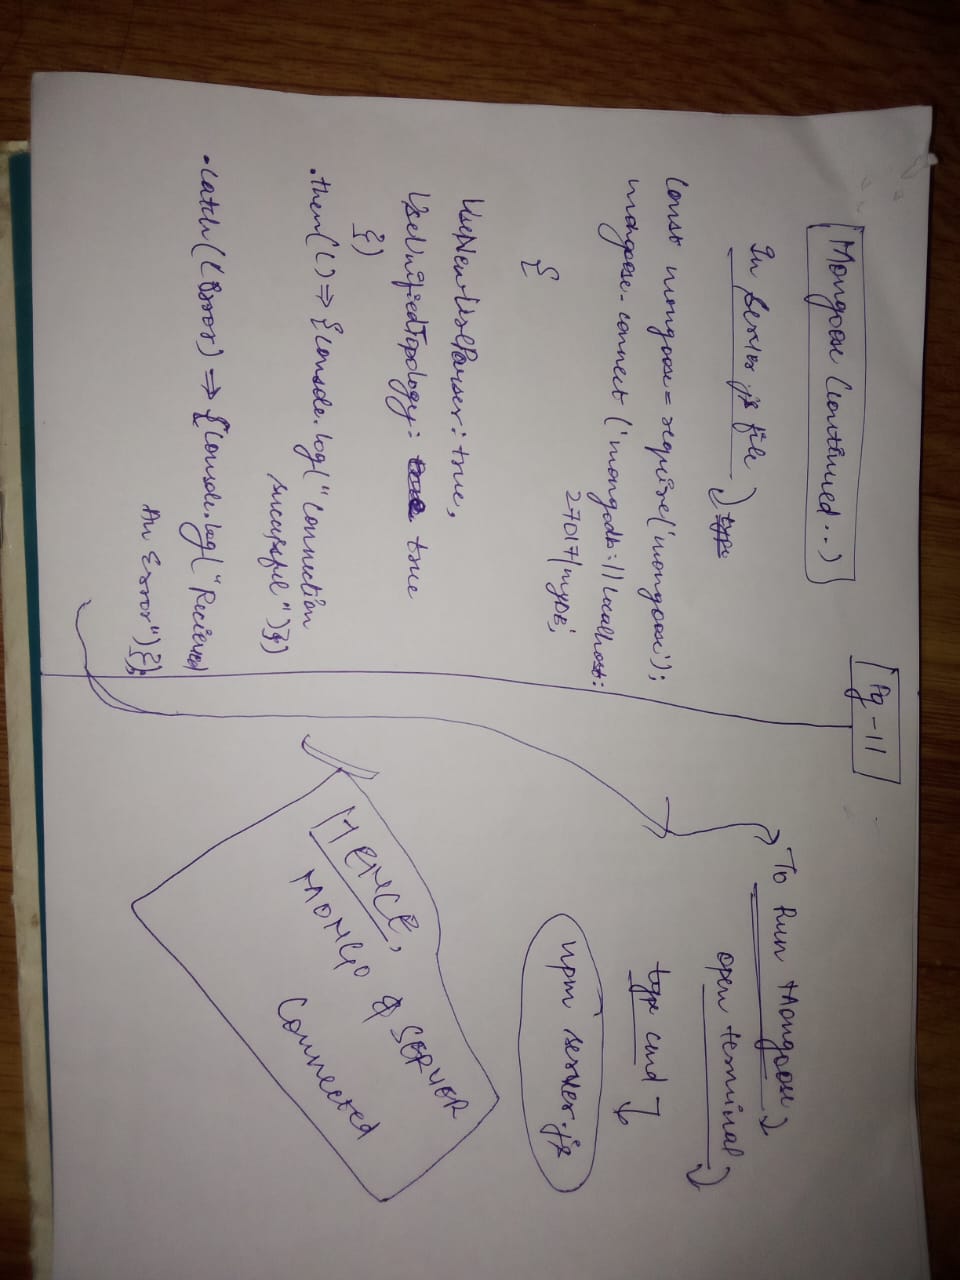 Pg-11
Mongoose (continued..)
In server.js file
type
const mongoose = require('mongoose');
mongoose.connect ('mongodb://localhost:
27017/myDB',
{
UseNewUrlParser: true,
UseUnifiedTopology: true
})
.then(() => {console.log("Connection
successful")})
.catch((Error) => {console.log("Recieved
An Error")});
To Run Mongoose
open terminal
type cmd
npm server.js
HENCE,
MONGO & SERVER
Connected